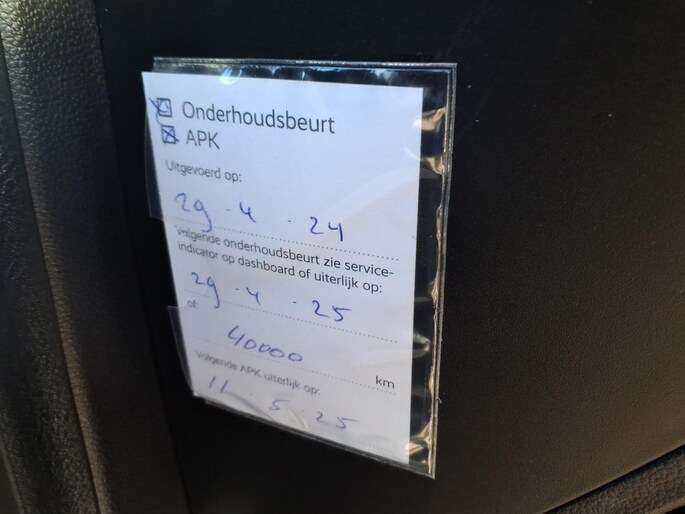 Onderhoudsbeurt
APK
Uitgevoerd op:
29 - 4 - 24
Volgende onderhoudsbeurt zie service-
indicator op dashboard of uiterlijk op:
29 - 4 - 25
of:
40000 km
Volgende APK uiterlijk op:
11 - 5 - 25